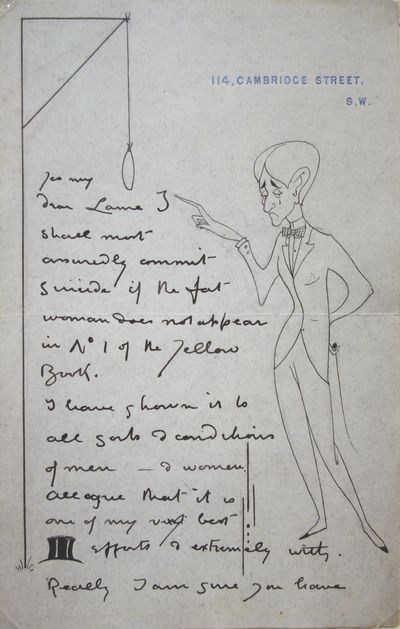 114, CAMBRIDGE STREET,
S.W.
Yes my
dear Lane I
shall most
assuredly commit
suicide if the fat
woman does not appear
in No 1 of the Yellow
Book.
I have shown it to
all sorts & conditions
of men — & women.
All agree that it is
one of my very best
efforts & extremely witty.
Really I am sure you have